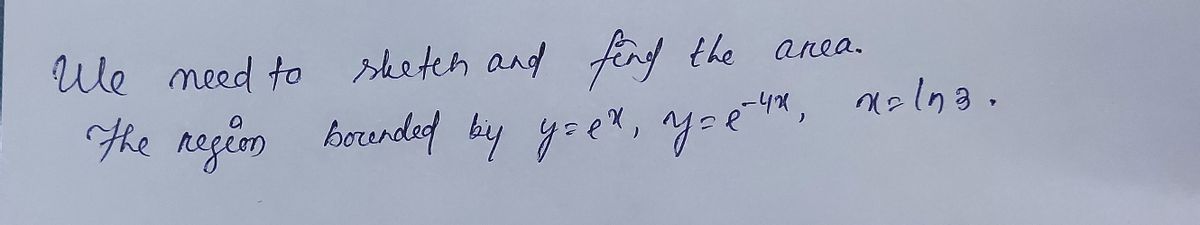 We need to sketch and find the area.
The region bounded by y=eˣ, y=e⁻⁴ˣ, x=ln3.